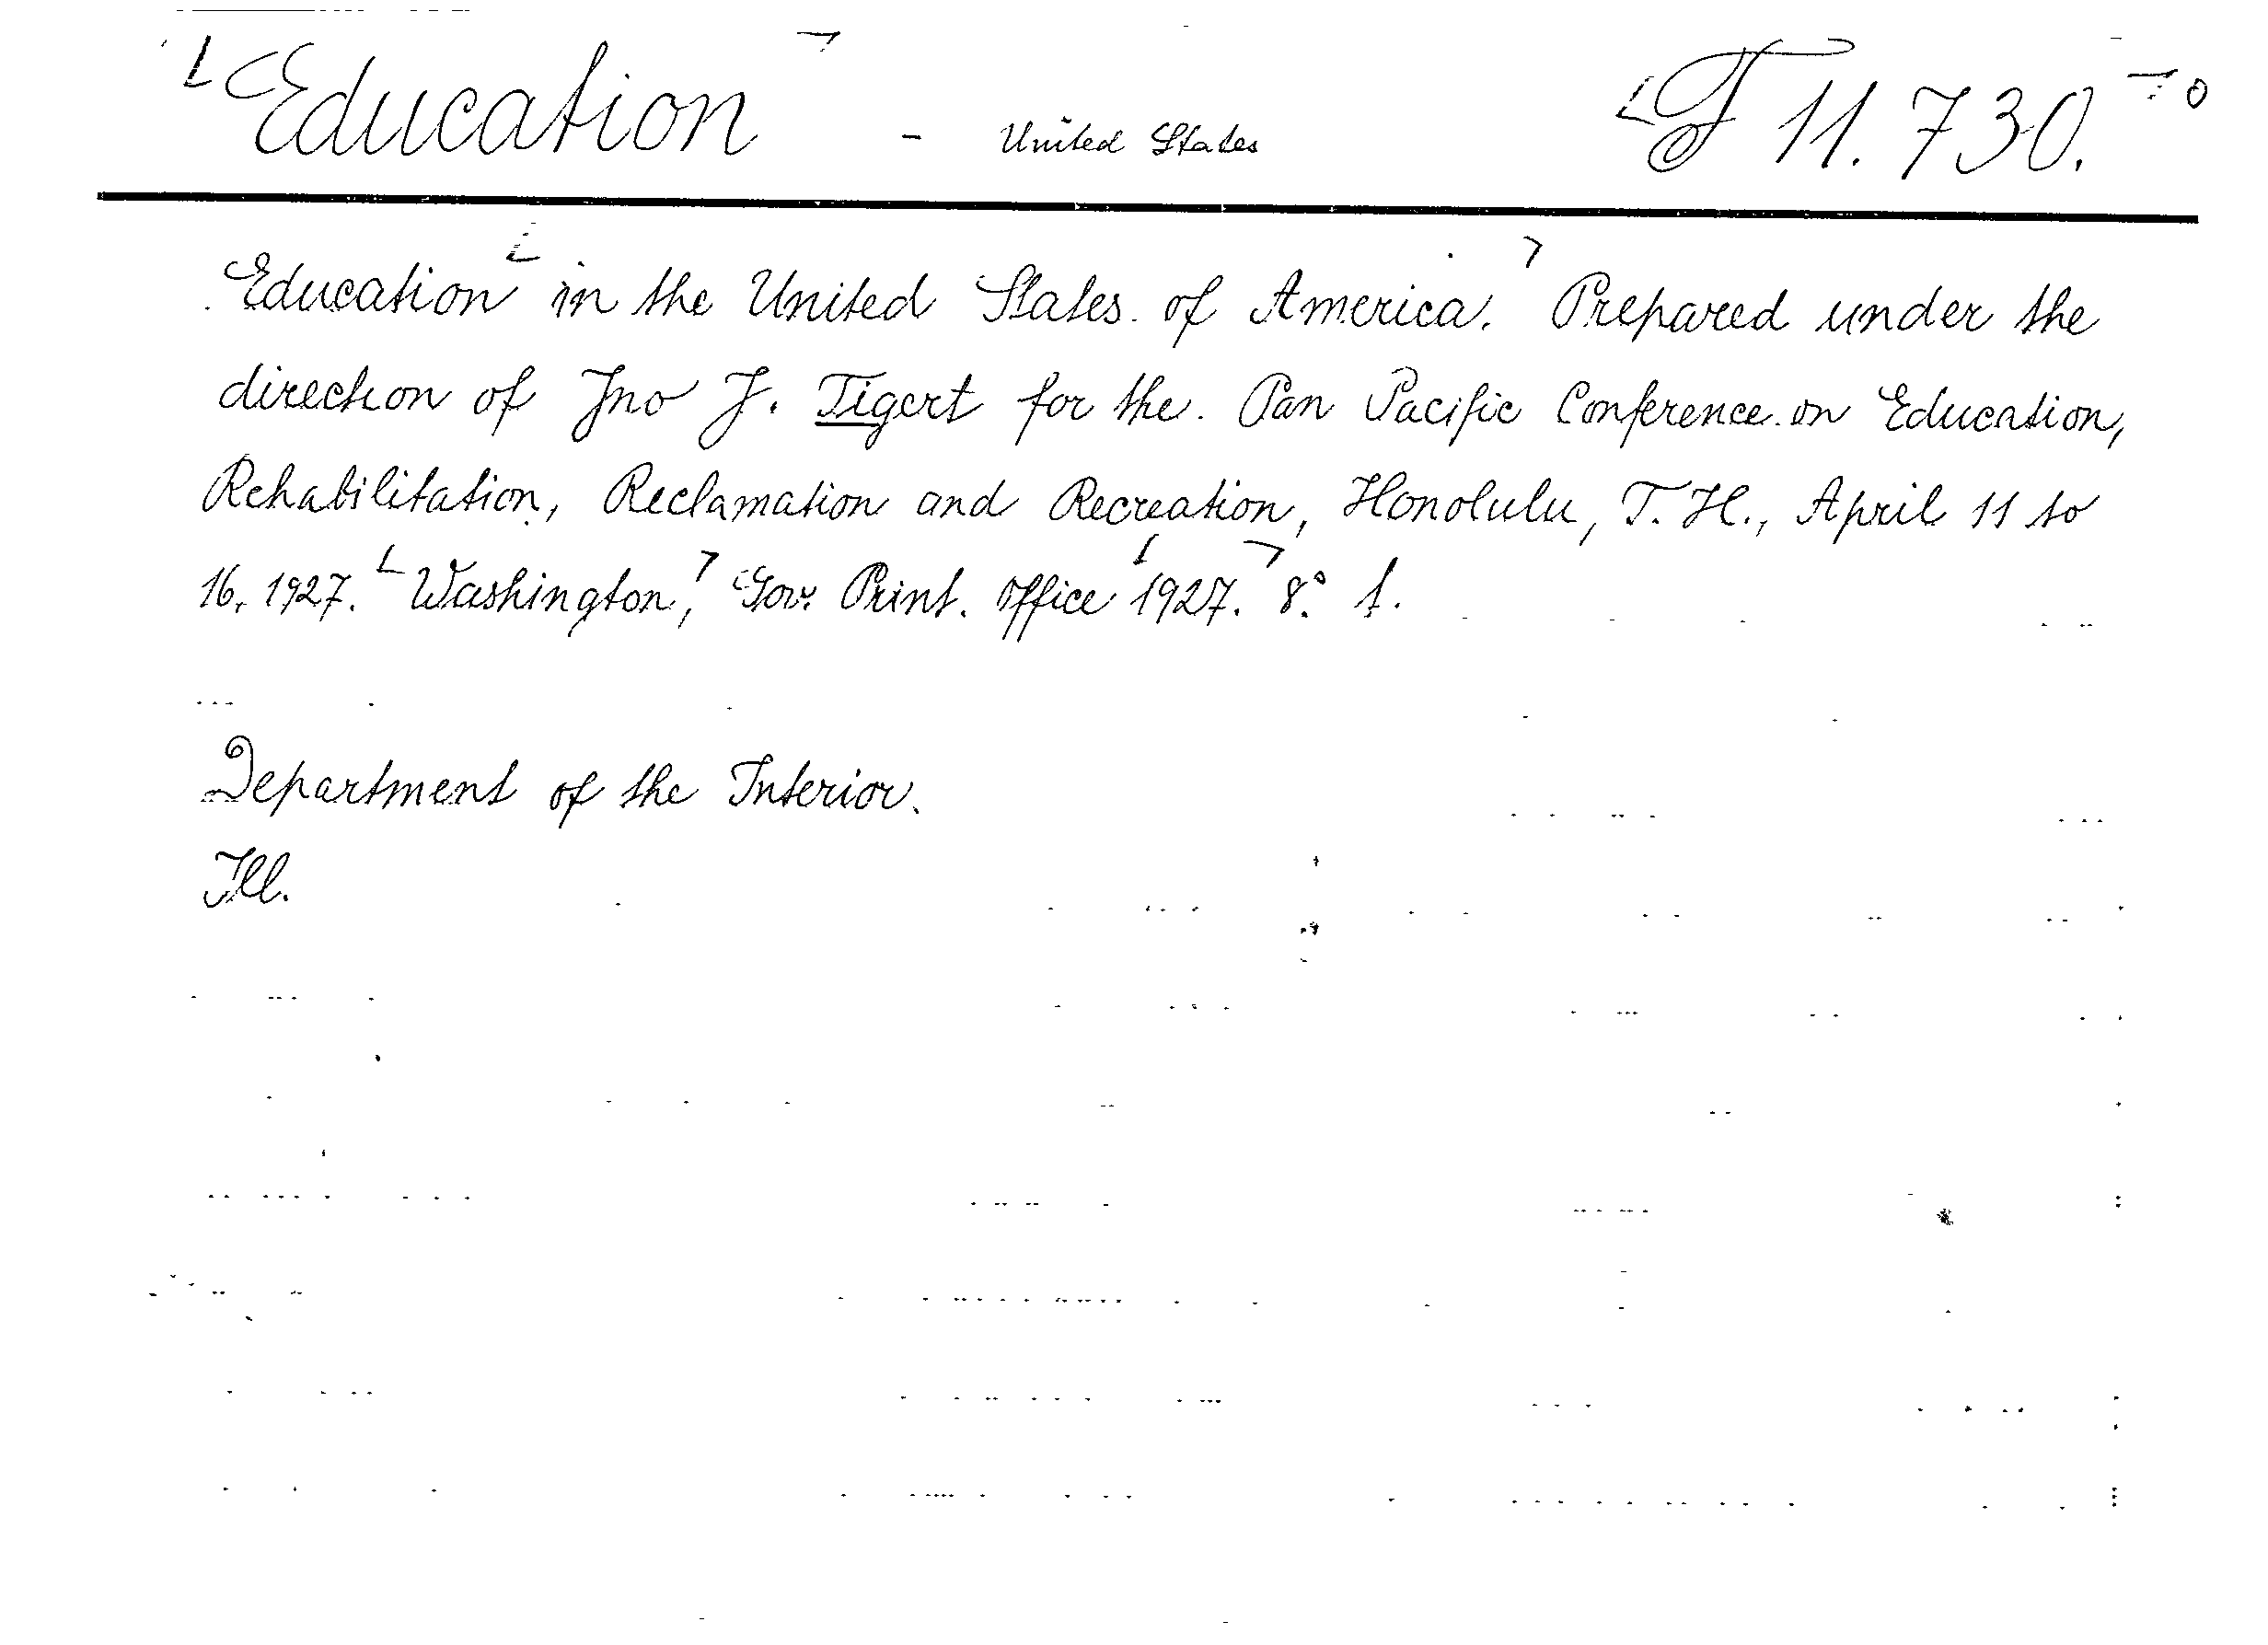 Education - United States T 11.730. 0
Education in the United States of America. Prepared under the
direction of Jno J. Tigert for the Pan Pacific Conference on Education,
Rehabilitation, Reclamation and Recreation, Honolulu, T. H., April 11 to
16, 1927. Washington, Gov. Print. Office 1927. 8° 1.
Department of the Interior.
Ill.